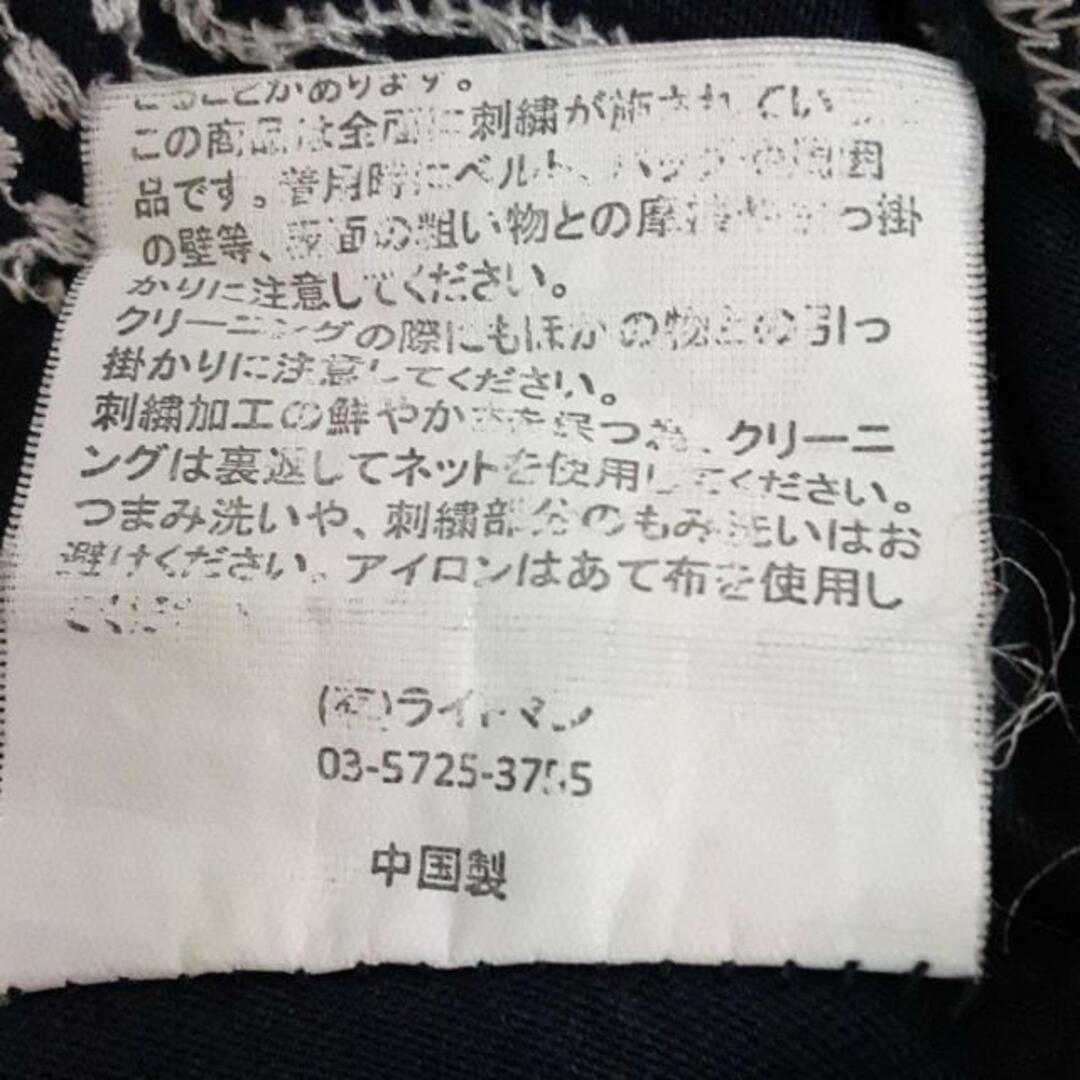 ることがあります。
この商品は全面に刺繍が施されてい
品です。着用時にベルト、バッグや周囲
の壁等、表面の粗い物との摩擦や引っ掛
かりに注意してください。
クリーニングの際にもほかの物との引っ
掛かりに注意してください。
刺繍加工の鮮やかさを保つ為、クリーニ
ングは裏返してネットを使用してください。
つまみ洗いや、刺繍部分のもみ洗いはお
避けください。アイロンはあて布を使用し
(株)ライトマン
03-5725-3755
中国製